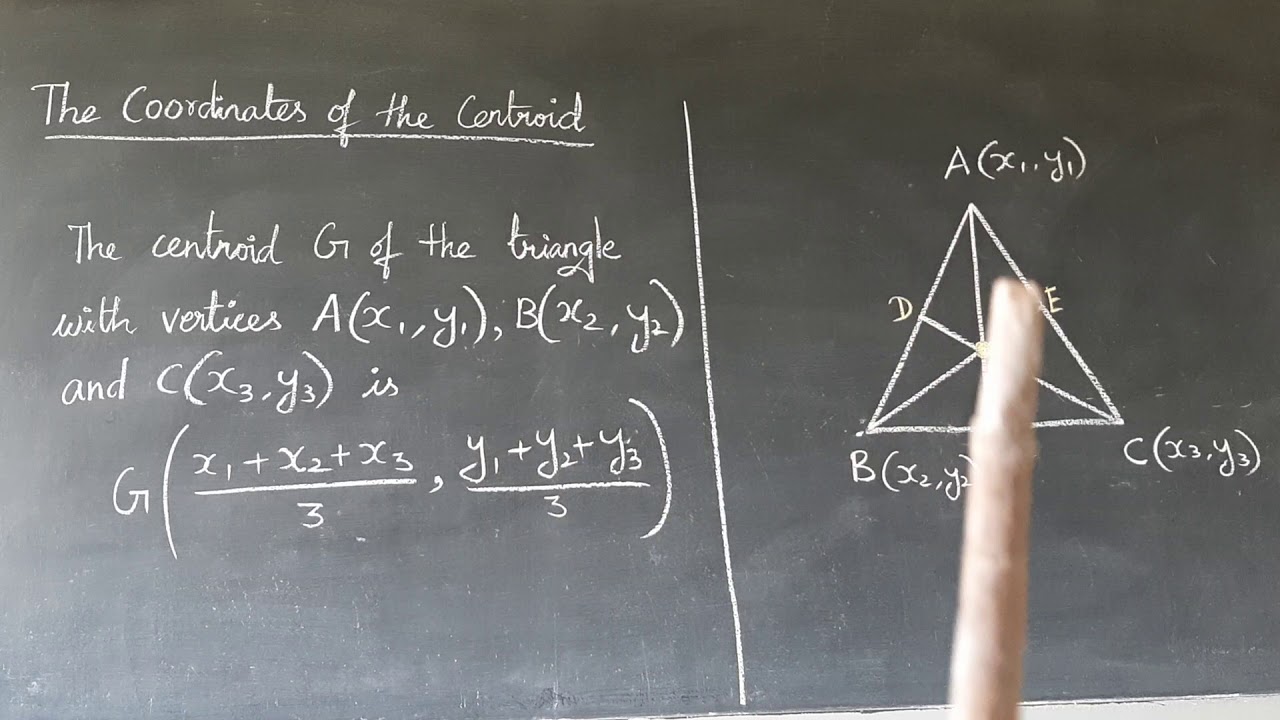 The Coordinates of the Centroid
The centroid G of the triangle
with vertices A(x₁, y₁), B(x₂, y₂)
and C(x₃, y₃) is
G(x₁+x₂+x₃/3, y₁+y₂+y₃/3)
A(x₁, y₁)
D
E
B(x₂, y₂
C(x₃, y₃)